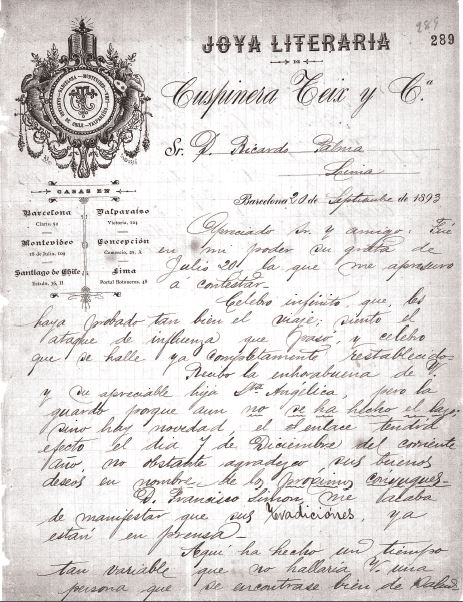 289
289
JOYA LITERARIA
DE
Cuspinera Teix y Cª
Sr. D. Ricardo Palma
Lima
CASAS EN
Barcelona
Claris, 92
Valparaiso
Victoria, 224
Montevideo
18 de Julio, 209
Concepción
Comercio, 29, A
Santiago de Chile
Estado, 36, H
Lima
Portal Botoneros, 48
Barcelona 20 de Septiembre de 1893
Apreciado Sr. y amigo: Fué
en mi poder su grata de
Julio 20, la que me apresuro
á contestar.
Celebro infinito que les
haya probado tan bien el viaje; siento el
ataque de influenza que pasó, y celebro
que se halle ya completamente restablecido.
Recibo la enhorabuena de V.
y su apreciable hija Sta. Angélica, pero la
guardo porque aun no se ha hecho el lazo:
sino hay novedad, el enlace tendrá
efecto el dia 7 de Diciembre del corriente
año, no obstante agradezco sus buenos
deseos en nombre de los próximos conyuges.-
D. Francisco Simon, me acaba
de manifestar que sus Tradiciones, ya
están en prensa.-
Aqui ha hecho un tiempo
tan variable que no hallaria V. una
persona que se encontrase bien de salud